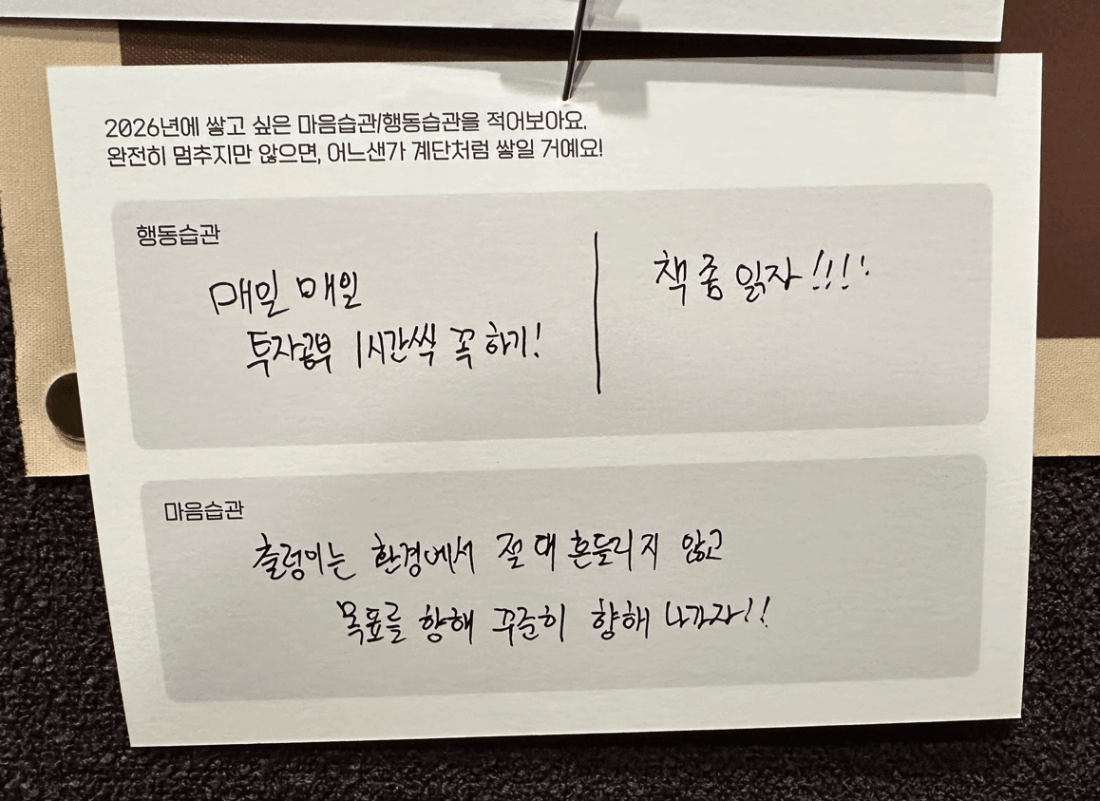 2026년에 쌓고 싶은 마음습관/행동습관을 적어보아요.
완전히 멈추지만 않으면, 어느샌가 계단처럼 쌓일 거예요!
행동습관
매일 매일
투자공부 1시간씩 꼭 하기!
책 좀 읽자!!!!
마음습관
출렁이는 환경에서 절대 흔들리지 않고
목표를 향해 꾸준히 향해 나가자!!